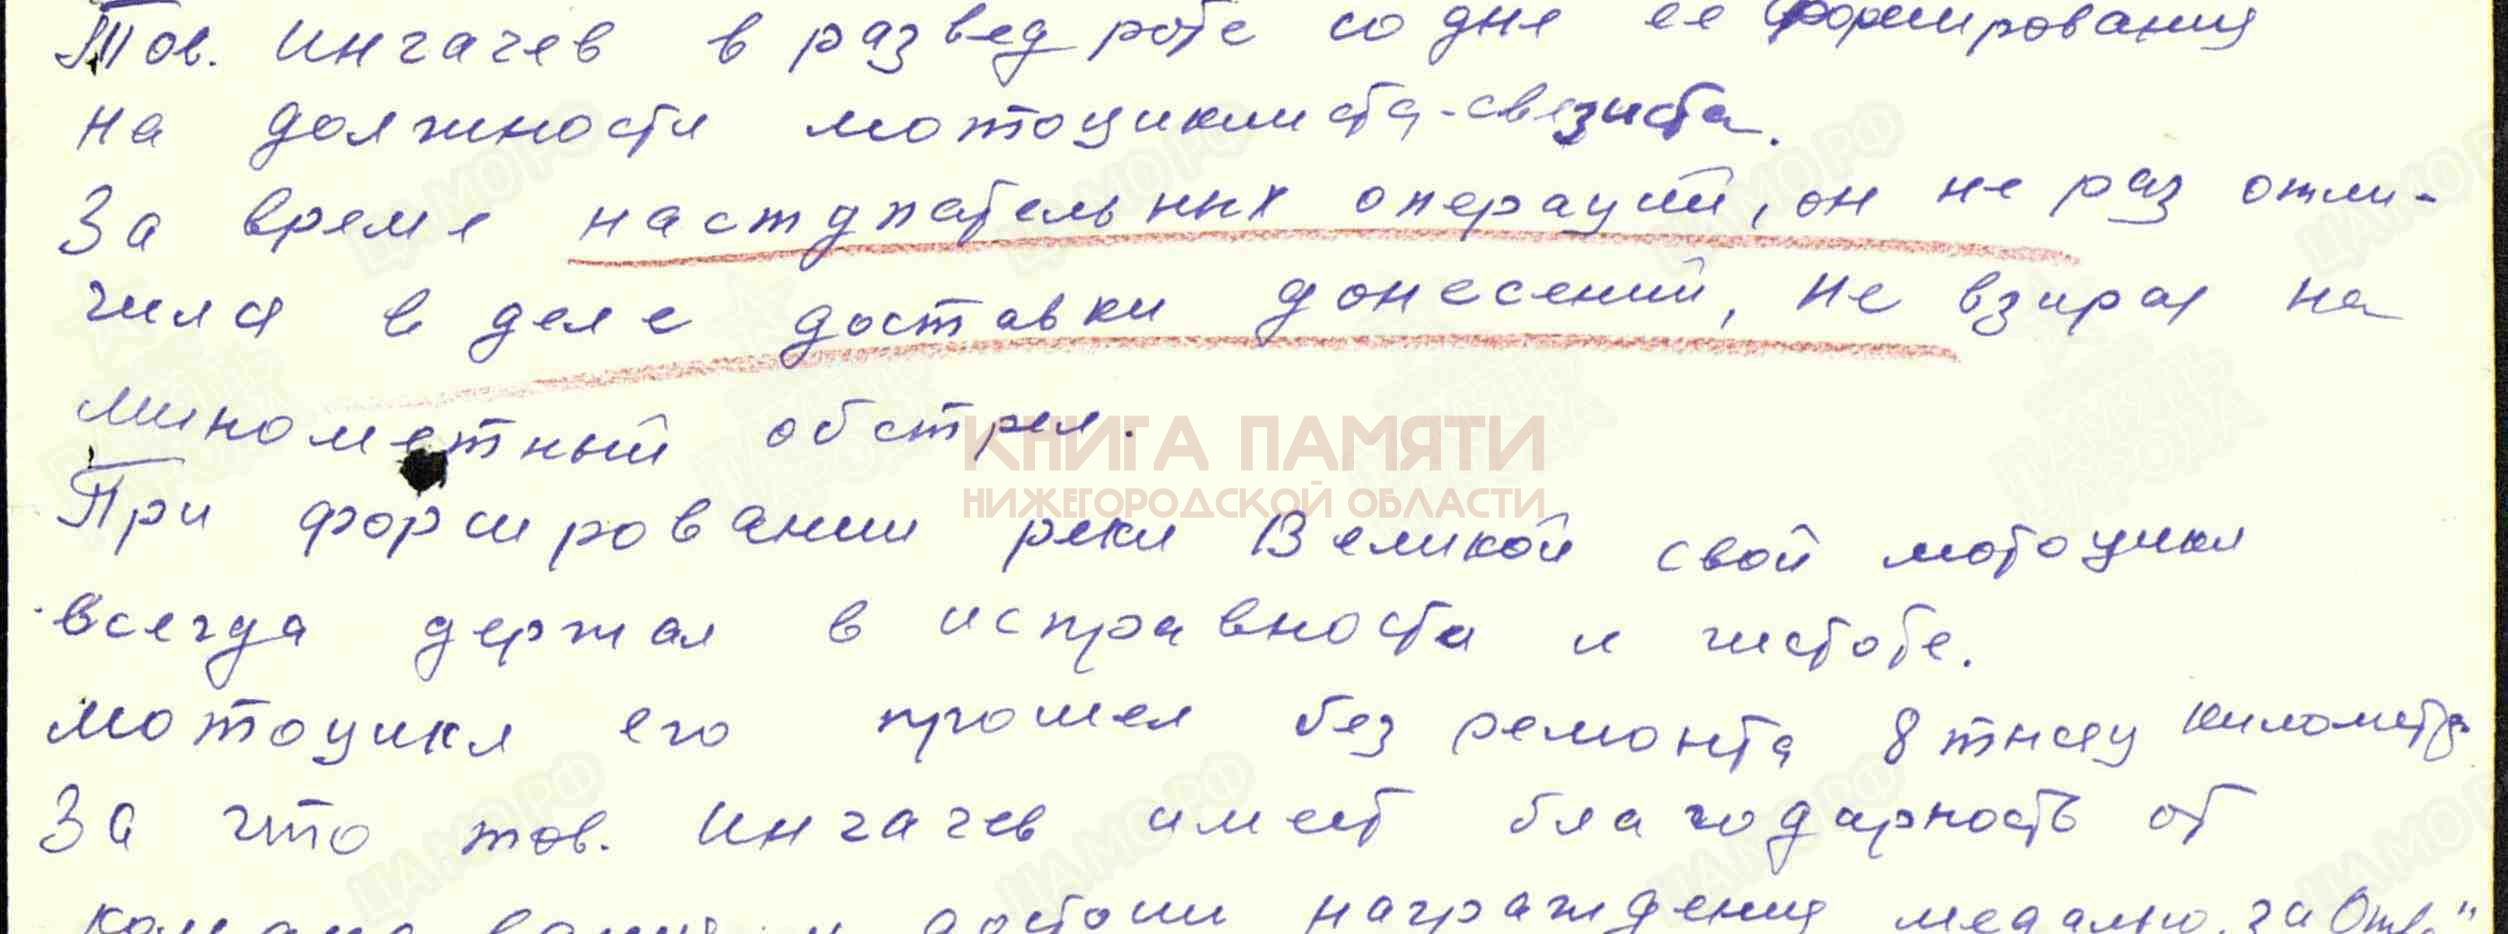 Тов. Ингачев в развед роте со дня ее формирования
на должности мотоциклиста-связиста.
За время наступательных операций, он не раз отли-
чился в деле доставки донесений, не взирая на
минометный обстрел.
КНИГА ПАМЯТИ
НИЖЕГОРОДСКОЙ ОБЛАСТИ
При формировании реки Великой свой мотоцикл
всегда держал в исправности и чистоте.
мотоцикл его прошел без ремонта 8 тысяч километр.
За что тов. Ингачев имеет благодарность от
и достоин награждения медалью „за Отв."